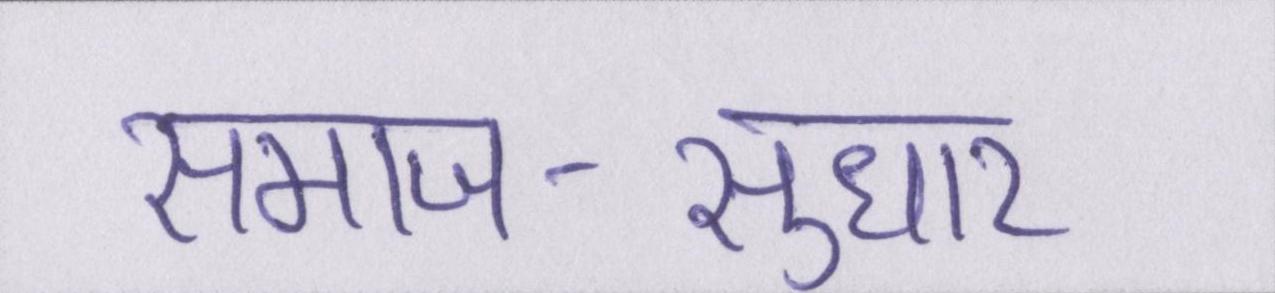 समाज-सुधार